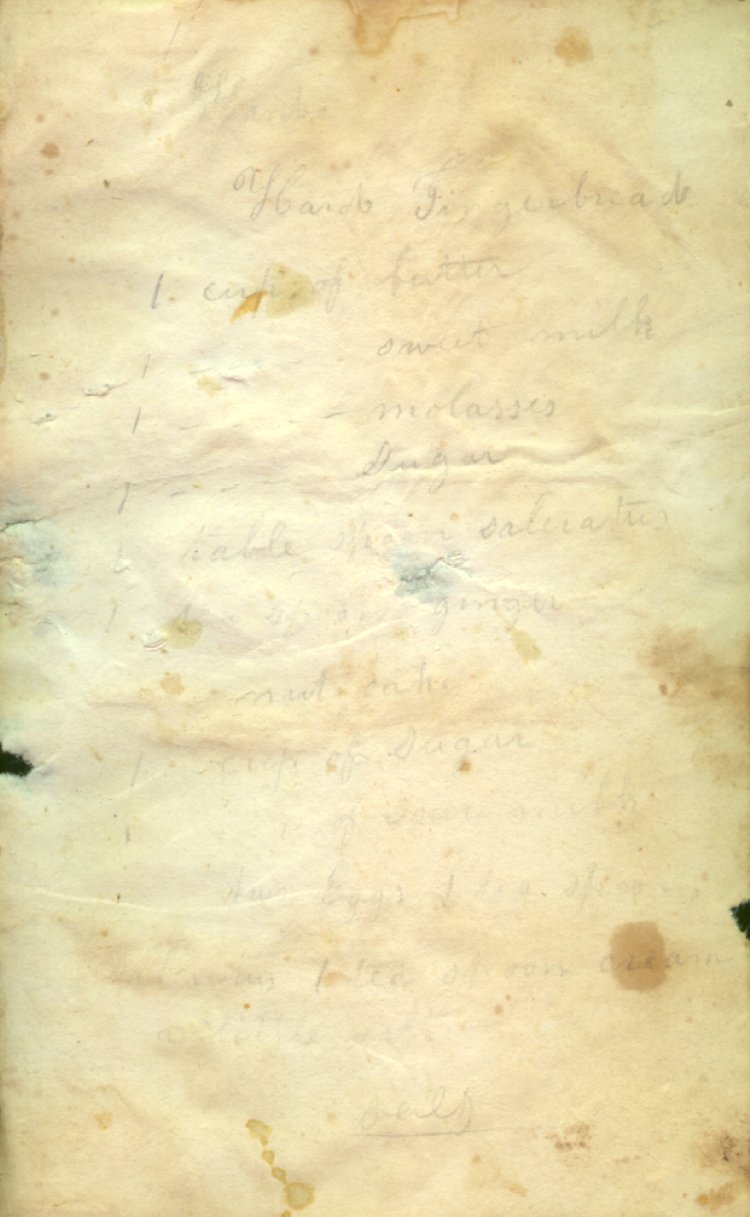 Hard
Hard Gingerbread
1 cup of butter
1 - - - - sweet milk
1 - - - - molasses
1 - - - - Sugar
1 table spoon saleratus
1 spoon ginger
nut cake
1 cup of Sugar
1 of sour milk
two Eggs 1 tea spoon
1 tea spoon cream
a little
salt